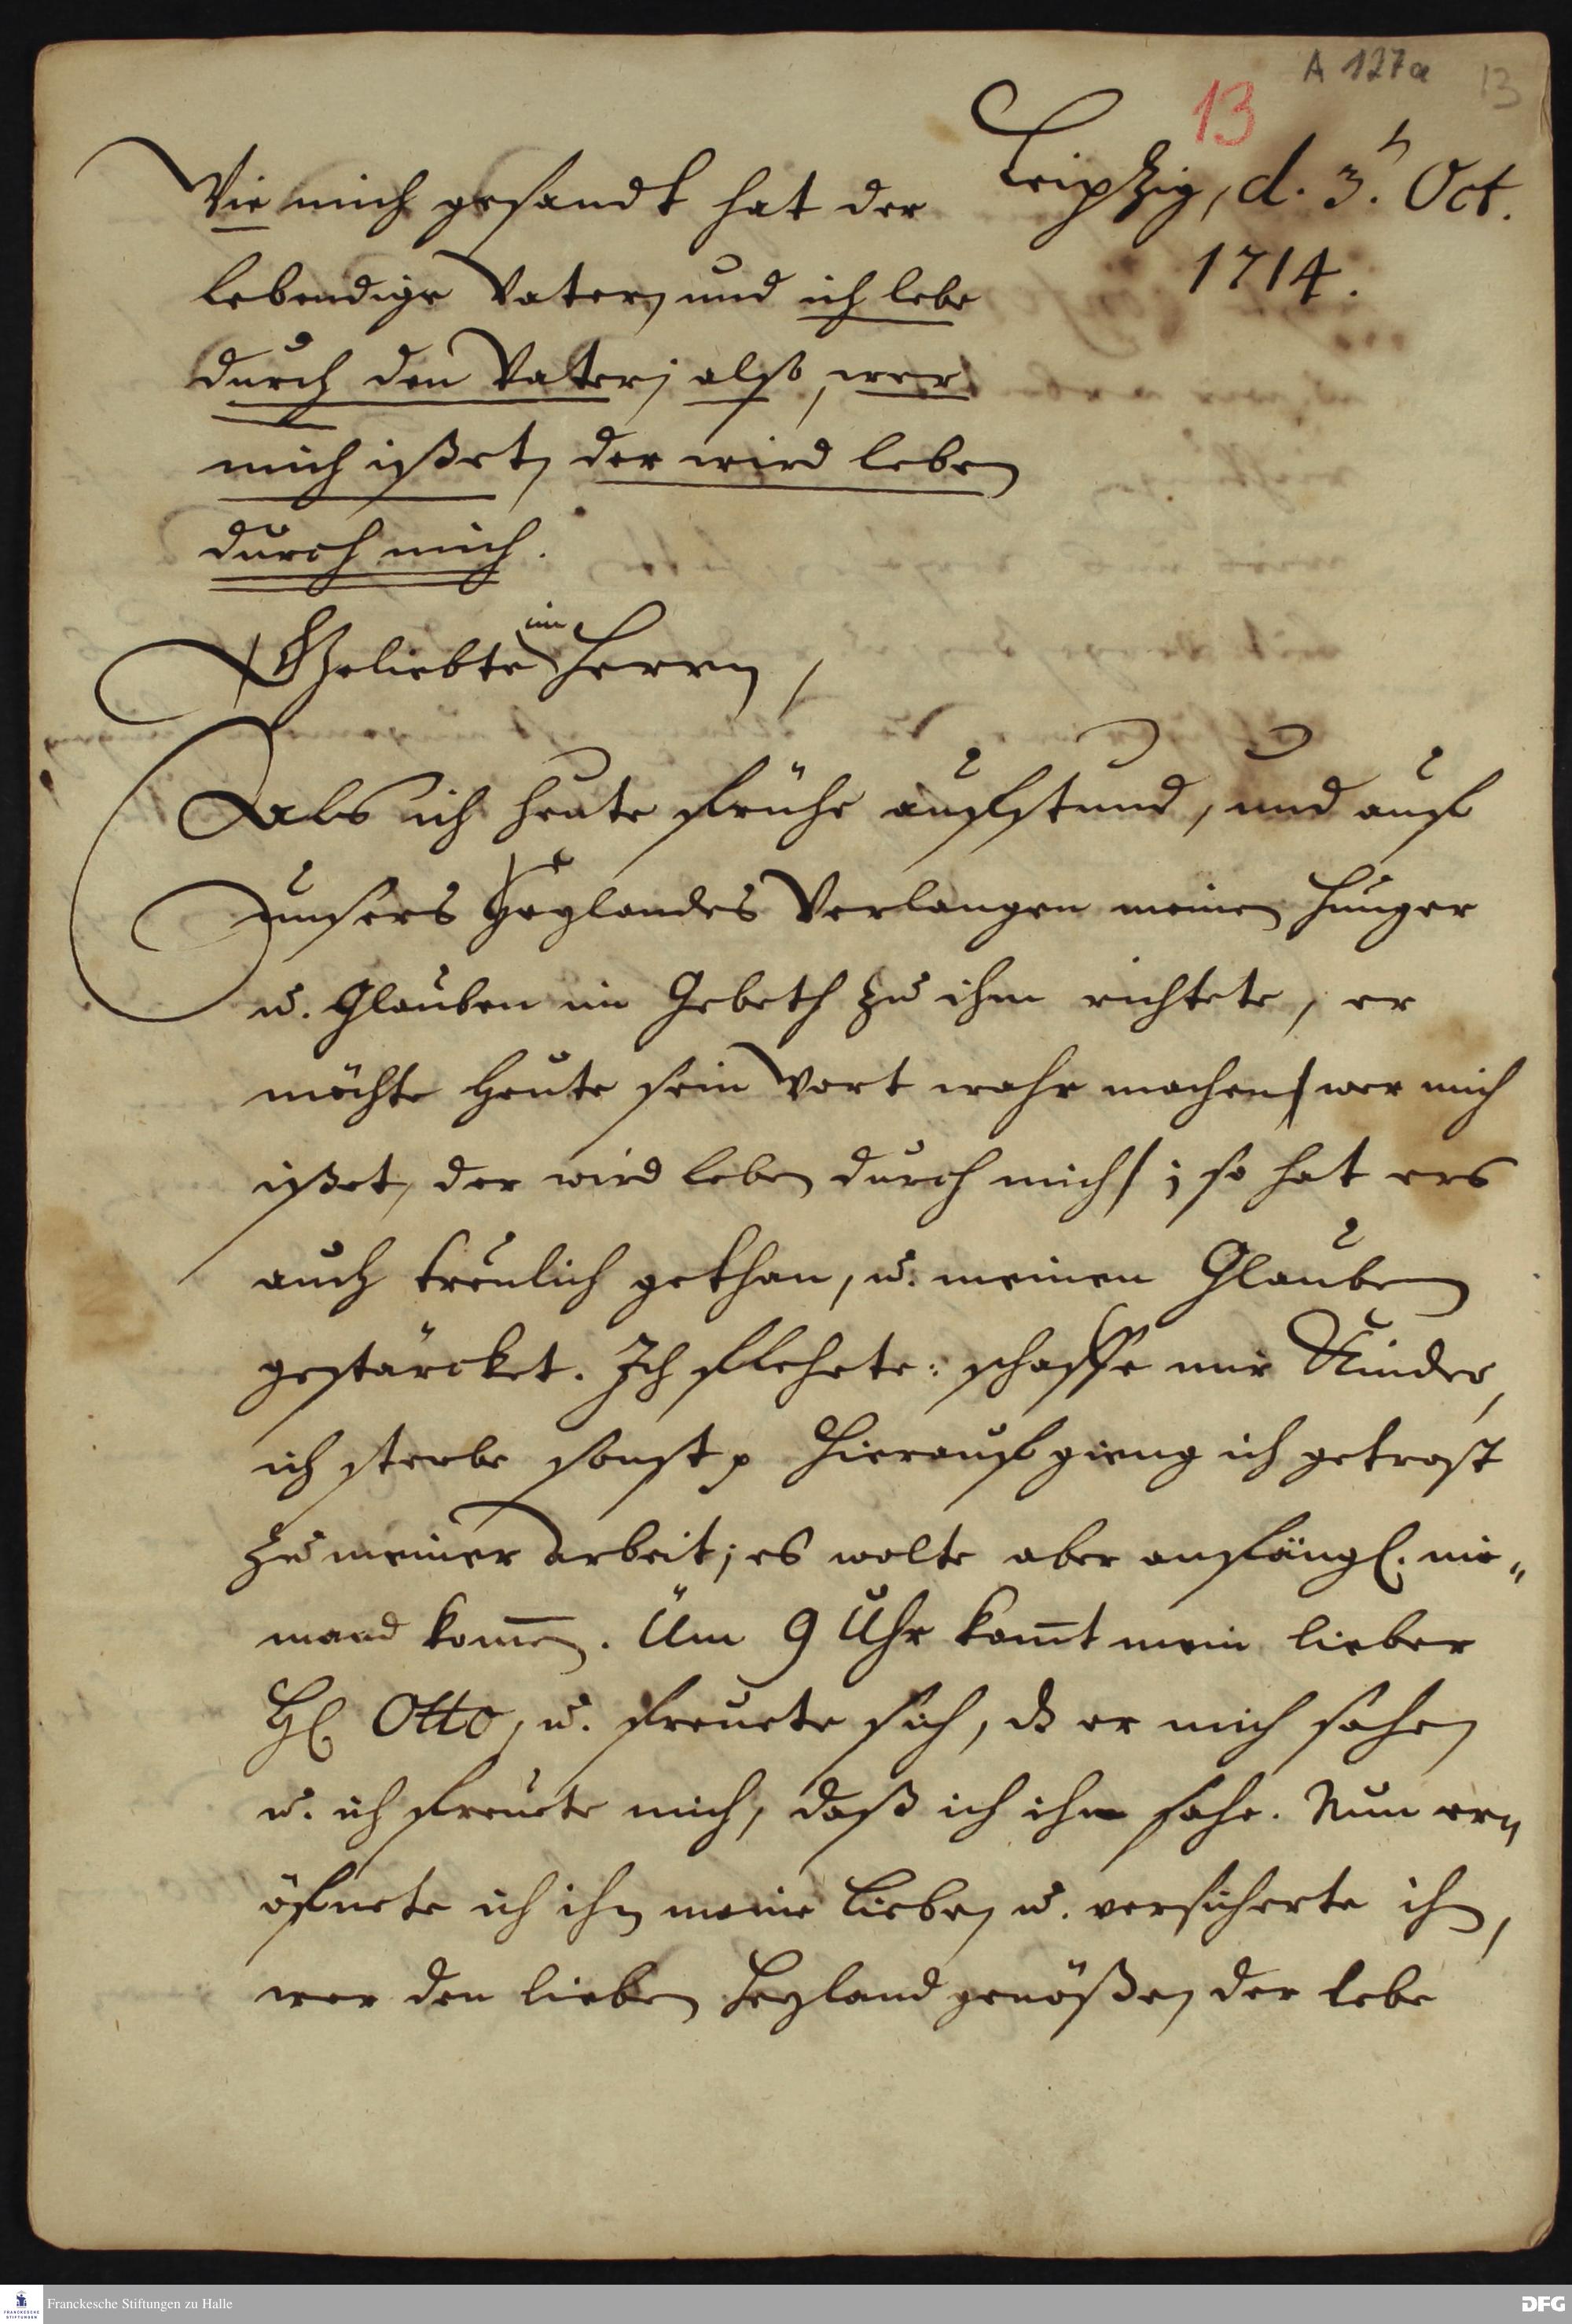 A 127a 13
13
Leipzig, d. 3. Oct.
1714.
Wie mich gesandt hat der
lebendige Vater, und ich lebe
durch den Vater; also, wer
mich ißet, der wird leben
durch mich.
Geliebte im Herrn,
Als ich heute frühe auffstund, und auf
unsers Heylandes Verlangen meinen Hunger
u. Glauben im Gebeth zu ihm richtete, er
möchte heute sein Wort wahr machen/ wer mich
ißet, der wird leben durch mich/; so hat ers
auch treulich gethan, u. meinen Glauben
gestärcket. Ich flehete: schaffe mir Kinder,
ich sterbe sonst p Hierauf gieng ich getrost
zu meiner Arbeit; es wolte aber anfängl. nie-
mand kom̅en. Um 9 Uhr kom̅t mein lieber
H. Otto, u. freuete sich, dß er mich sahe,
u. ich freuete mich, daß ich ihn sahe. Nun er-
öfnete ich ihm meine Liebe, u. versicherte ihn,
wer den lieben Heyland genöße, der lebe
Franckesche Stiftungen zu Halle
FRANCKESCHE STIFTUNGEN
DFG